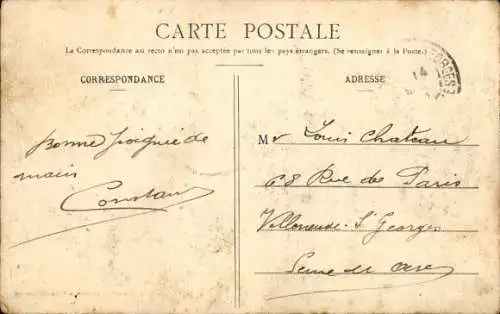 CARTE POSTALE
La Correspondance au recto n'est pas acceptée par tous les pays étrangers. (Se renseigner à la Poste.)
CORRESPONDANCE
Bonne poignée de
main
Constan
ADRESSE
14
Mr Louis Chateau
68 Rue de Paris
Villeneuve-St Georges
Seine et Oise